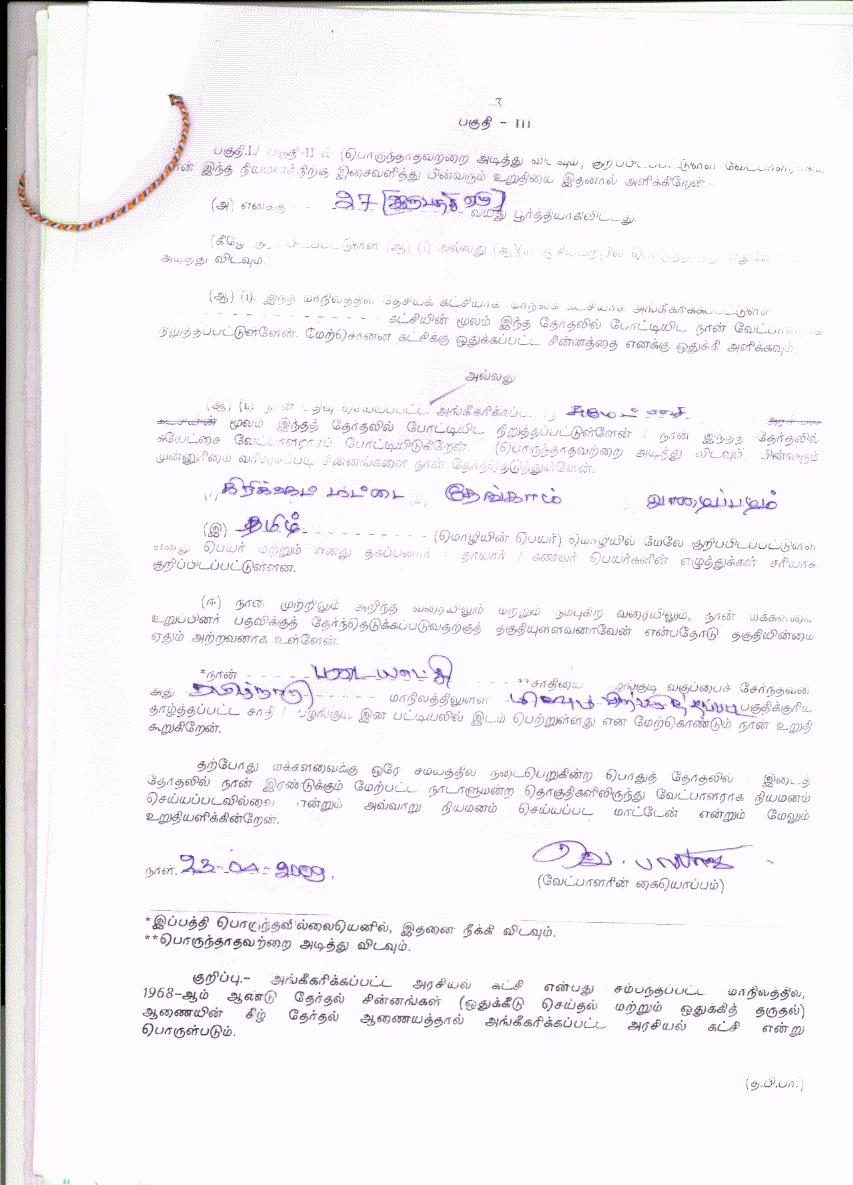 3
பகுதி - III
(பொருந்தாதவற்றை அடித்து விடவும்,
இந்த நியமனத்திற்கு இசைவளித்து பின்வரும் உறுதியை இதனால் அளிக்கிறேன்.-
(அ) எனக்கு 27 வயது பூர்த்தியாகிவிட்டது.
(கீழே (ஆ) (i) அல்லது (ஆ)
அடித்து விடவும்.)
(ஆ) (i). இந்த மாநிலத்தில் தேசியக் கட்சியாக மாநிலக் கட்சியாக அங்கீகரிக்கப்பட்டுள்ள
கட்சியின் மூலம் இந்த தேர்தலில் போட்டியிட நான் வேட்பாளராக
நிறுத்தப்பட்டுள்ளேன். மேற்சொன்ன கட்சிக்கு ஒதுக்கப்பட்ட சின்னத்தை எனக்கு ஒதுக்கி அளிக்கவும்.
அல்லது
(ஆ) நான் பதிவு செய்யப்பட்ட அங்கீகரிக்கப்பட
கட்சியின் மூலம் இந்தத் தேர்தலில் போட்டியிட நிறுத்தப்பட்டுள்ளேன் / நான் இந்தத் தேர்தலில்
சுயேட்சை வேட்பாளராகப் போட்டியிடுகிறேன். (பொருந்தாதவற்றை அடித்து விடவும் பின்வரும்
முன்னுரிமை வரிசைப்படி சின்னங்களை நான் தேர்ந்தெடுத்துள்ளேன்.
கிரிக்கெட் மட்டை தேங்காய் வாழைப்பழம்
(இ) தமிழ் (மொழியின் பெயர்) மொழியில் மேலே குறிப்பிடப்பட்டுள்ள
எனது பெயர் மற்றும் எனது தகப்பனார் / தாயார் / கணவர் பெயர்களின் எழுத்துக்கள் சரியாக
குறிப்பிடப்பட்டுள்ளன.
(ஈ) நான் முற்றிலும் அறிந்த வரையிலும் மற்றும் நம்புகிற வரையிலும், நான் மக்களவை
உறுப்பினர் பதவிக்குத் தேர்ந்தெடுக்கப்படுவதற்குத் தகுதியுள்ளவனாவேன் என்பதோடு தகுதியின்மை
ஏதும் அற்றவனாக உள்ளேன்.
*நான் **சாதியை பழங்குடி வகுப்பைச் சேர்ந்தவன்
அது தமிழ்நாடு மாநிலத்திலுள்ள பகுதிக்குரிய
தாழ்த்தப்பட்ட சாதி / பழங்குடி இன பட்டியலில் இடம் பெற்றுள்ளது என மேற்கொண்டும் நான் உறுதி
கூறுகிறேன்.
தற்போது மக்களவைக்கு ஒரே சமயத்தில் நடைபெறுகின்ற பொதுத் தேர்தலில் / இடைத்
தேர்தலில் நான் இரண்டுக்கும் மேற்பட்ட நாடாளுமன்ற தொகுதிகளிலிருந்து வேட்பாளராக நியமனம்
செய்யப்படவில்லை என்றும் அவ்வாறு நியமனம் செய்யப்பட மாட்டேன் என்றும் மேலும்
உறுதியளிக்கின்றேன்.
நாள். 23-04-2009
(வேட்பாளரின் கையொப்பம்)
*இப்பத்தி பொருந்தவில்லையெனில், இதனை நீக்கி விடவும்.
**பொருந்தாதவற்றை அடித்து விடவும்.
குறிப்பு.- அங்கீகரிக்கப்பட்ட அரசியல் கட்சி என்பது சம்பந்தப்பட்ட மாநிலத்தில்,
1968-ஆம் ஆண்டு தேர்தல் சின்னங்கள் (ஒதுக்கீடு செய்தல் மற்றும் ஒதுக்கித் தருதல்)
ஆணையின் கீழ் தேர்தல் ஆணையத்தால் அங்கீகரிக்கப்பட்ட அரசியல் கட்சி என்று
பொருள்படும்.
(த.பி.பா.)